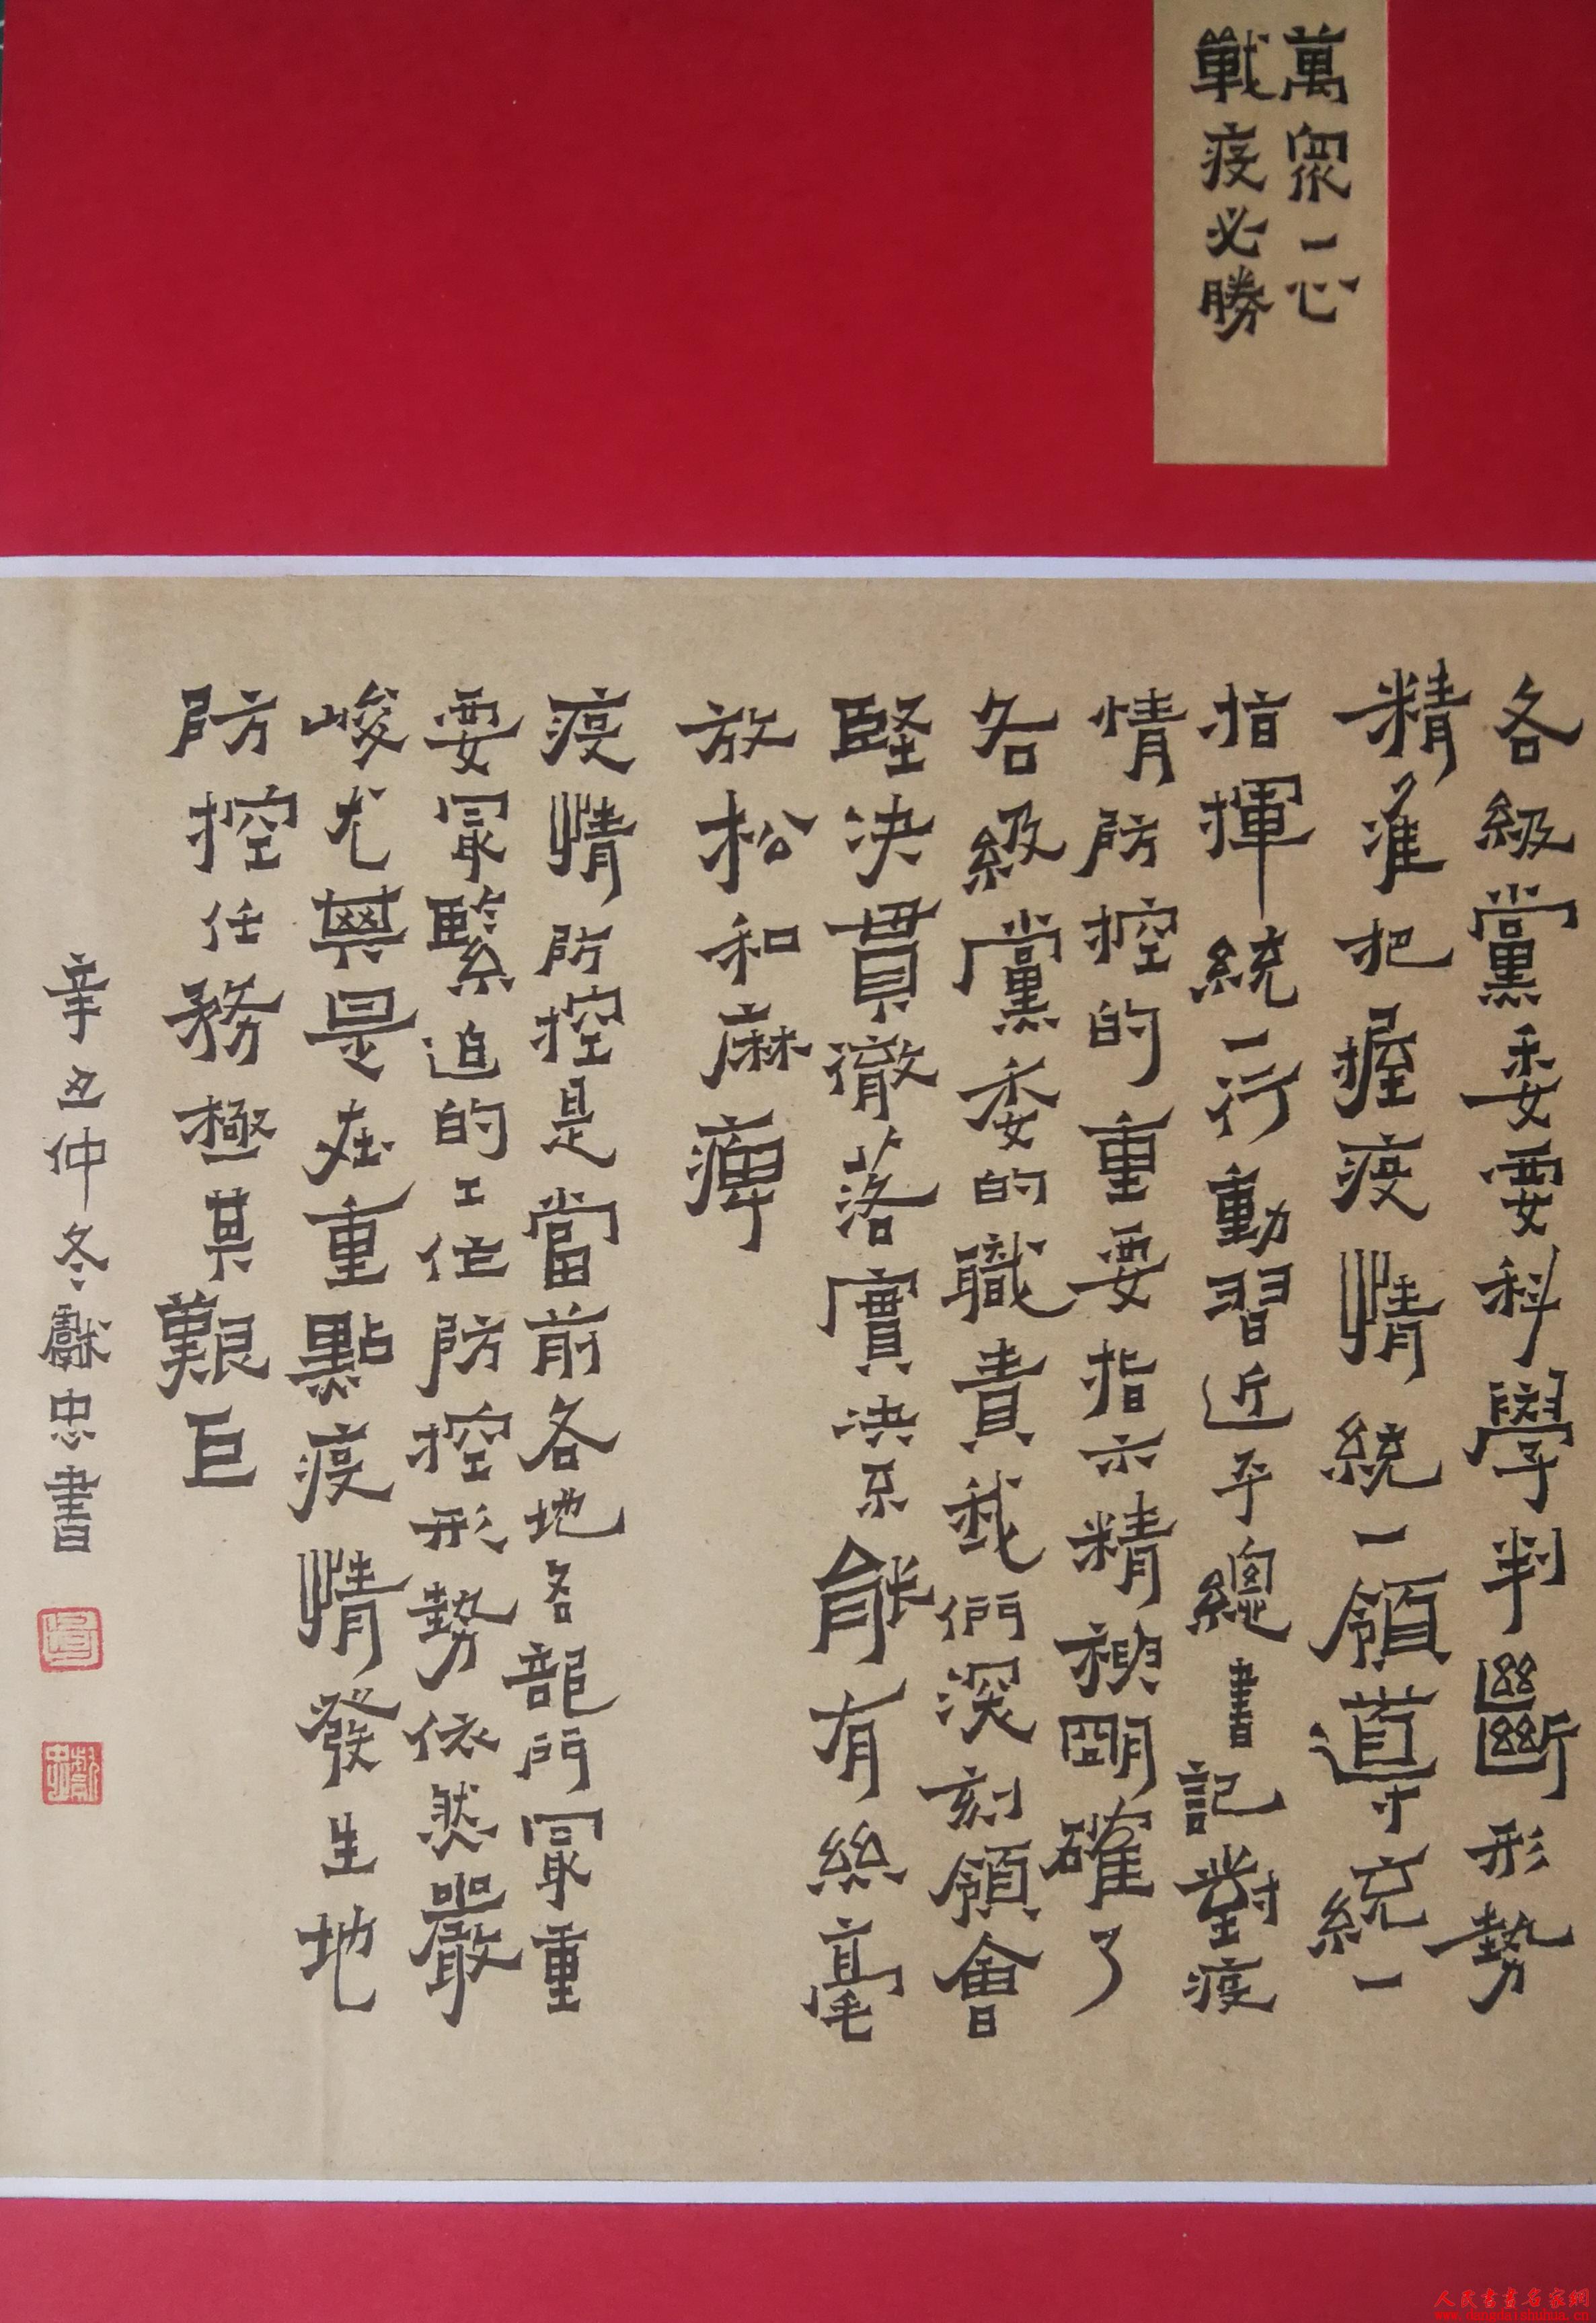 萬眾一心
戰疫必勝
各級黨委要科學判斷形勢
精准把握疫情統一領導統一
指揮統一行動習近平總書記對疫
情防控的重要指示精神明確了
各級黨委的職責我們深刻領會
堅決貫徹落實決不能有絲毫
放松和麻痺
疫情防控是當前各地各部門最重
要最緊迫的工作防控形勢依然嚴
峻尤其是在重點疫情發生地
防控任務極其艱巨
辛丑仲冬獻忠書
人民書畫名家網
www.dangdaishuhua.com